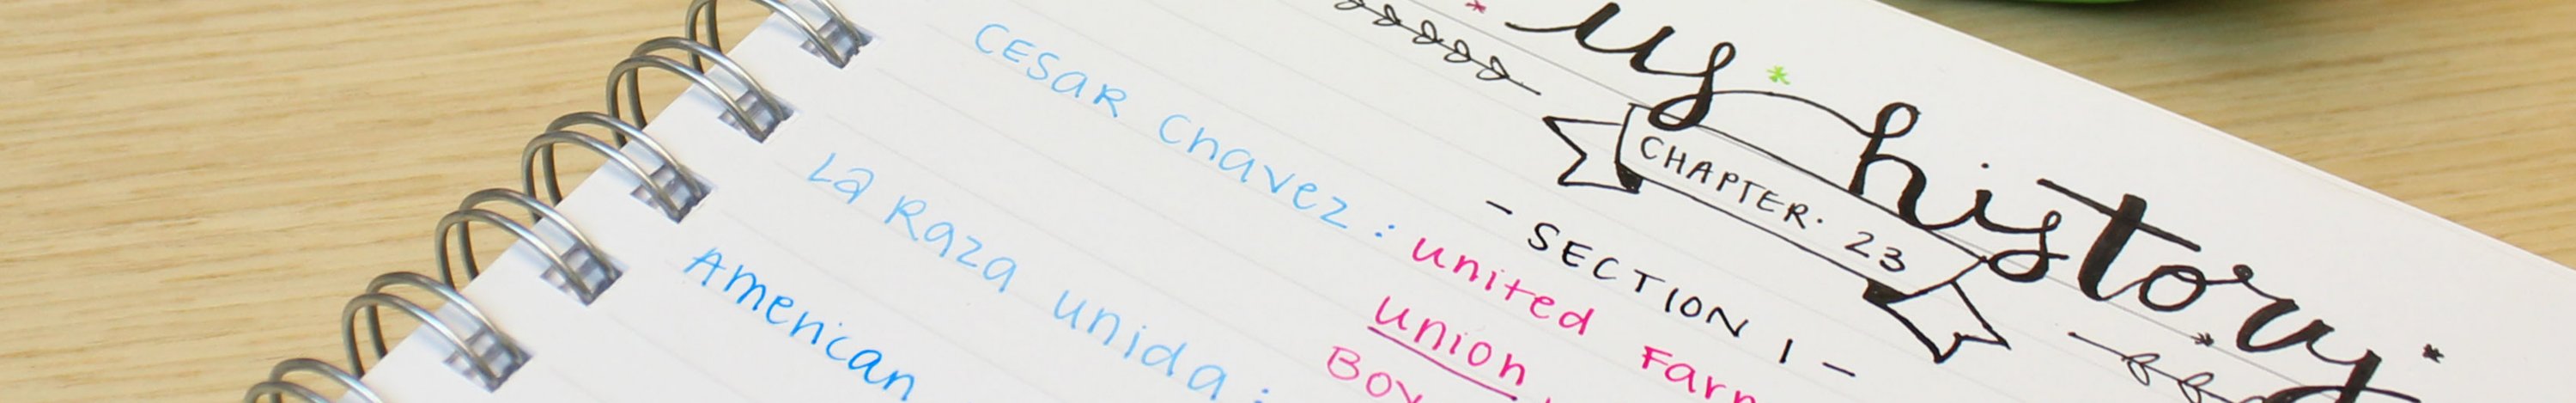 us history
CHAPTER. 23
- SECTION 1 -
CESAR Chavez : united Farm
union
La Raza unida :
American